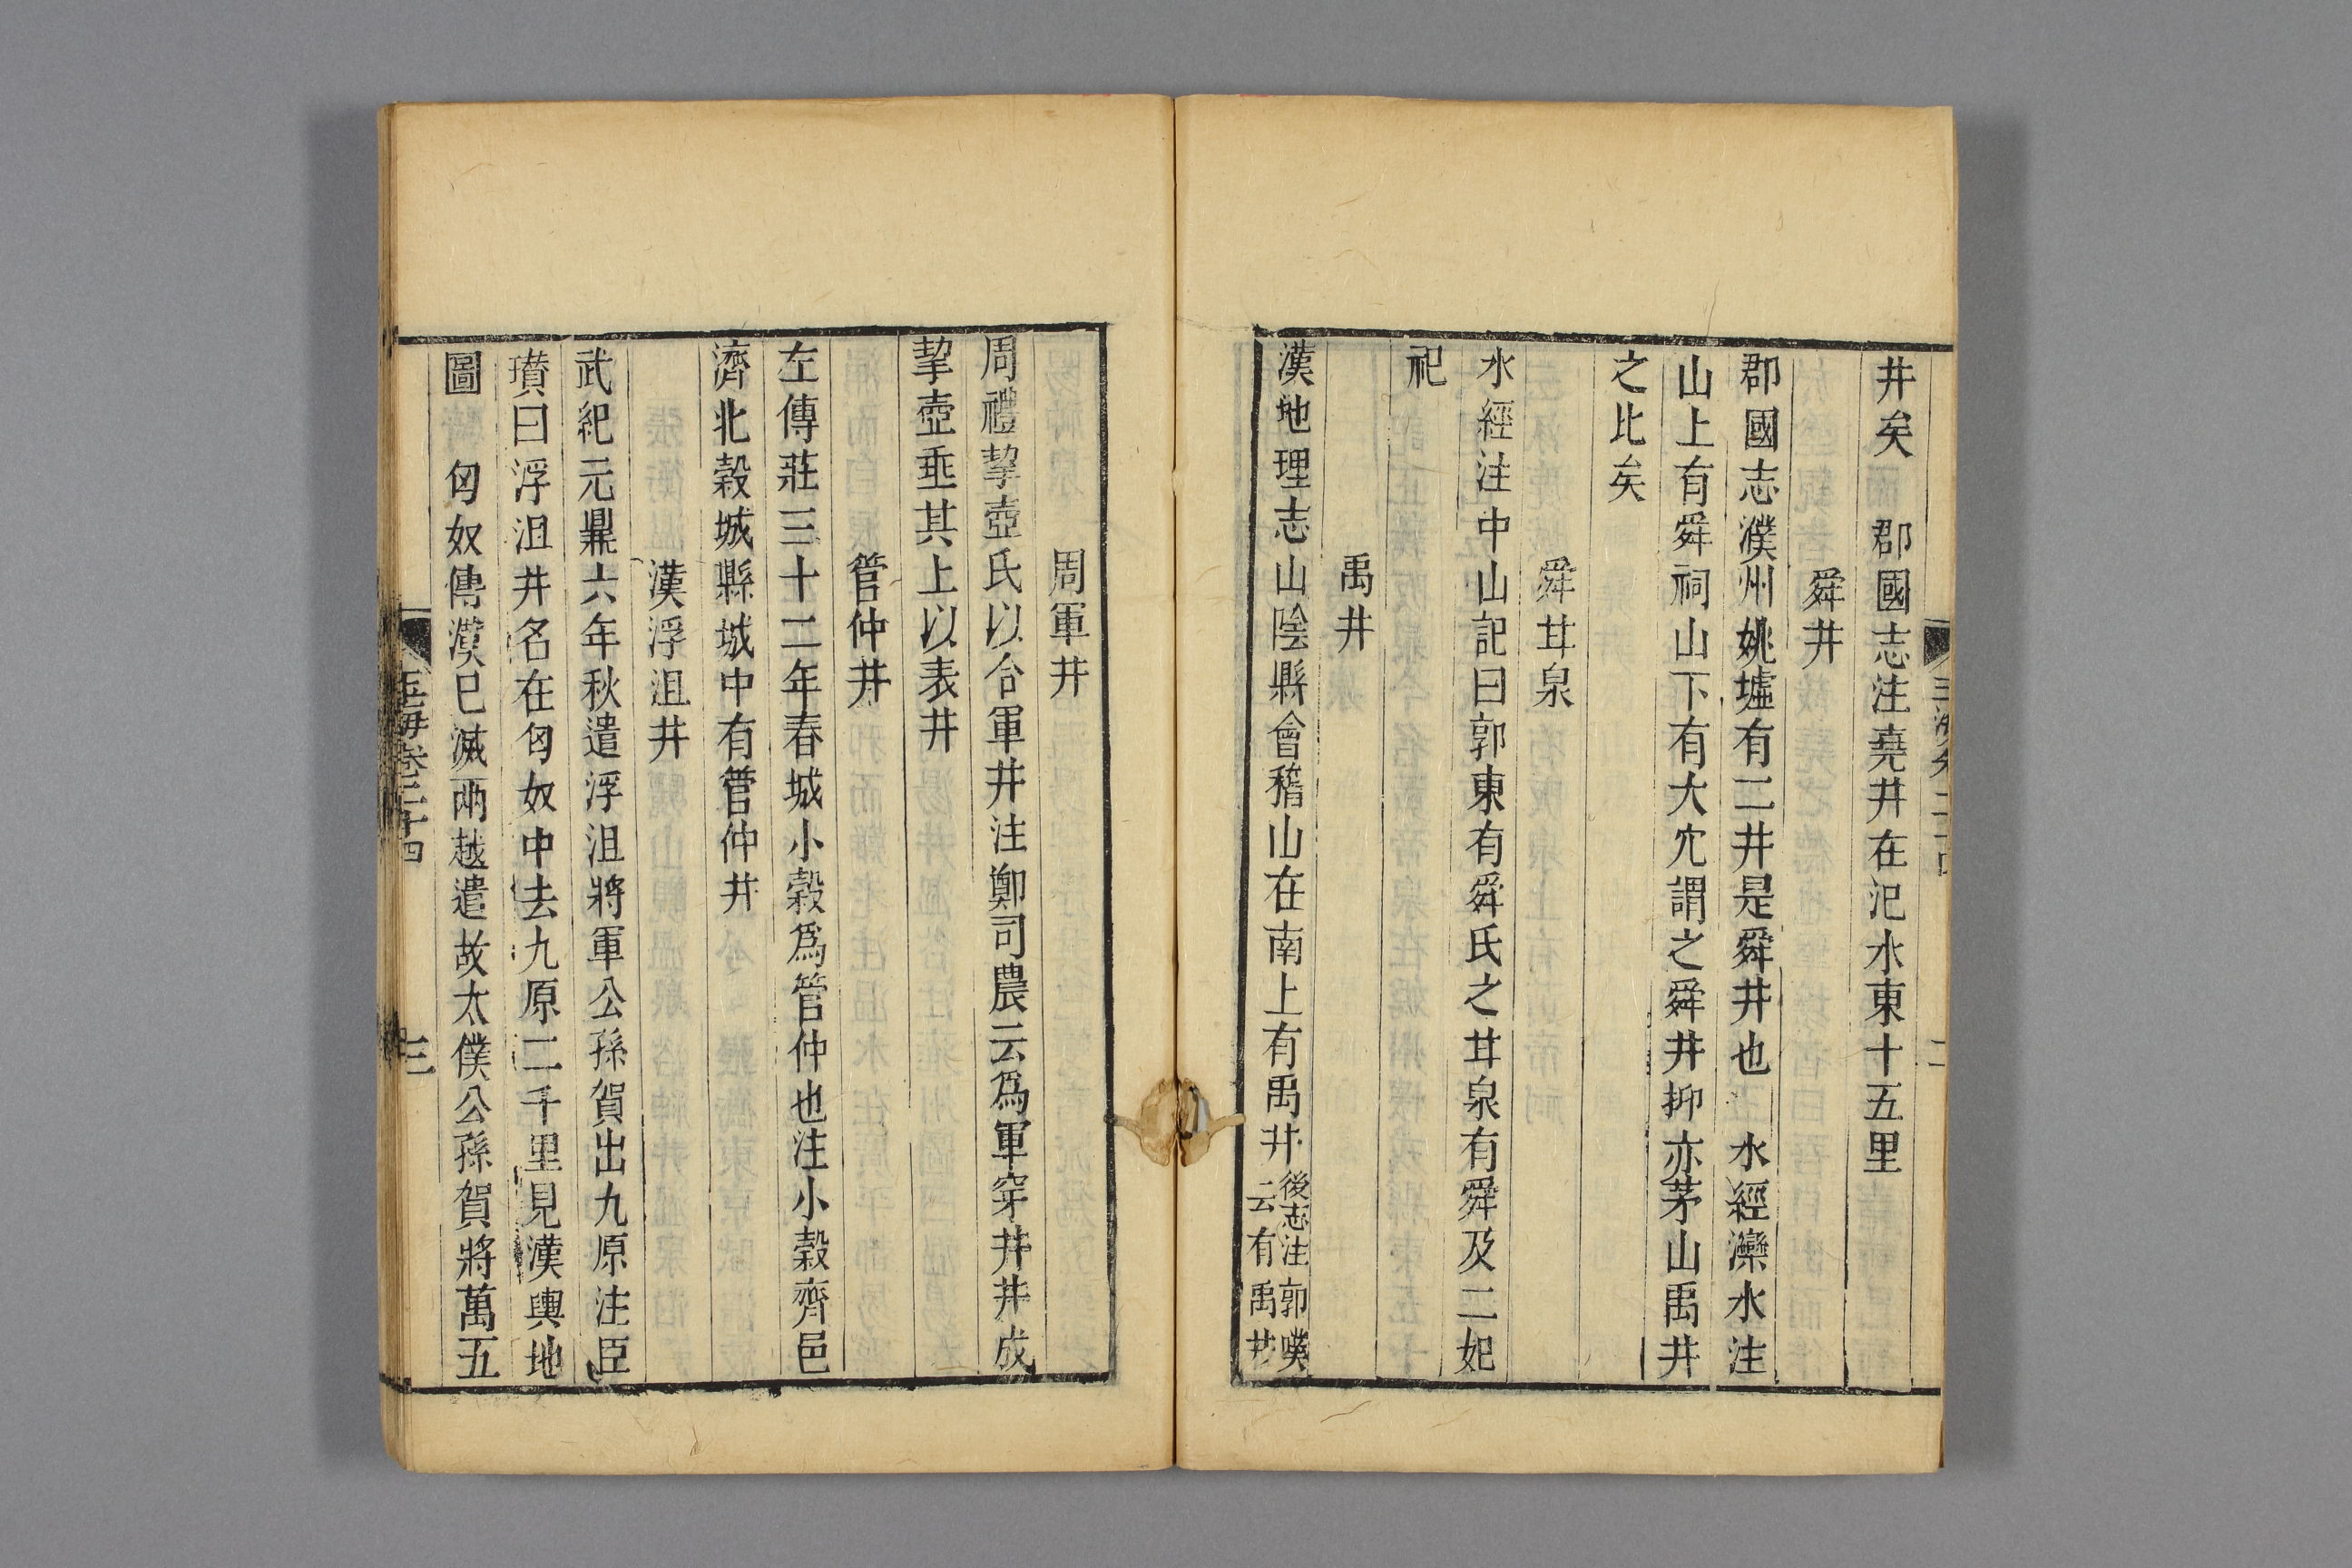 井矣　郡國志注堯井在汜水東十五里
舜井
郡國志濮州姚墟有二井是舜井也　水經灅水注
山上有舜祠山下有大穴謂之舜井抑亦茅山禹井
之比矣
舜甘泉
水經注中山記曰郭東有舜氏之甘泉有舜及二妃
祀
禹井
漢地理志山陰縣會稽山在南上有禹井
後志注郭璞
云有禹井
周軍井
周禮挈壺氏以令軍井注鄭司農云爲軍穿井井成
挈壺垂其上以表井
管仲井
左傳莊三十二年春城小穀爲管仲也注小穀齊邑
濟北穀城縣城中有管仲井
漢浮沮井
武紀元鼎六年秋遣浮沮將軍公孫賀出九原注臣
瓚曰浮沮井名在匈奴中去九原二千里見漢輿地
圖　匈奴傳漢巳滅兩越遣故太僕公孫賀將萬五
玉海卷二十四
三